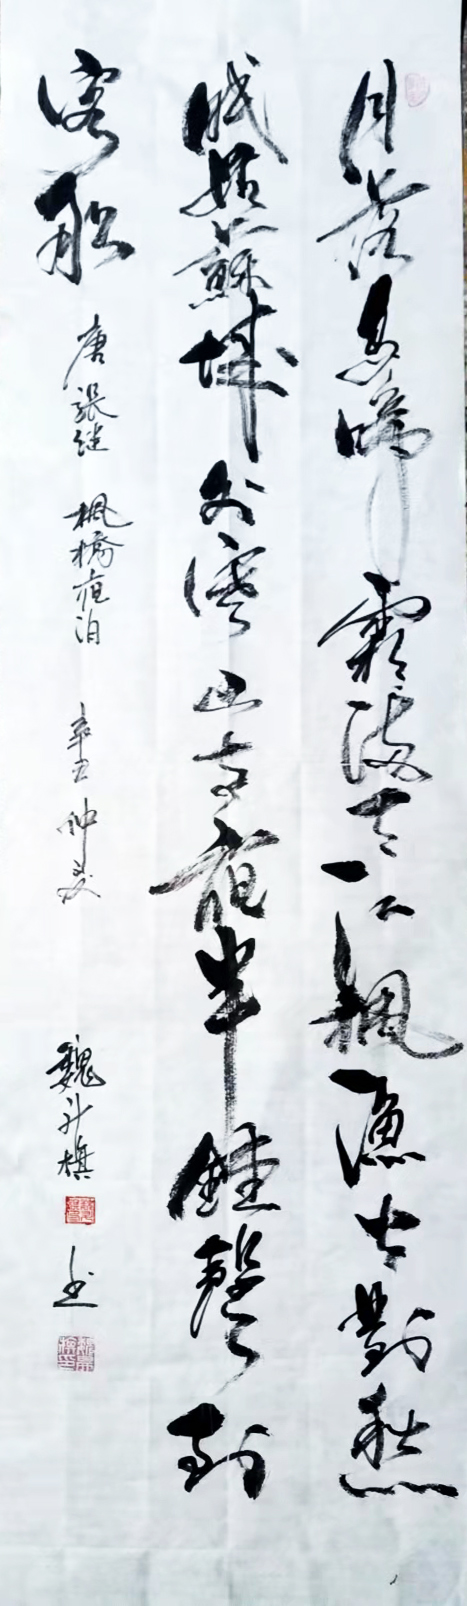 月落烏啼霜滿天江楓漁火對愁
眠姑蘇城外寒山寺夜半鐘聲到
客船 唐張继 楓橋夜泊 辛丑仲夏 魏升旗 书